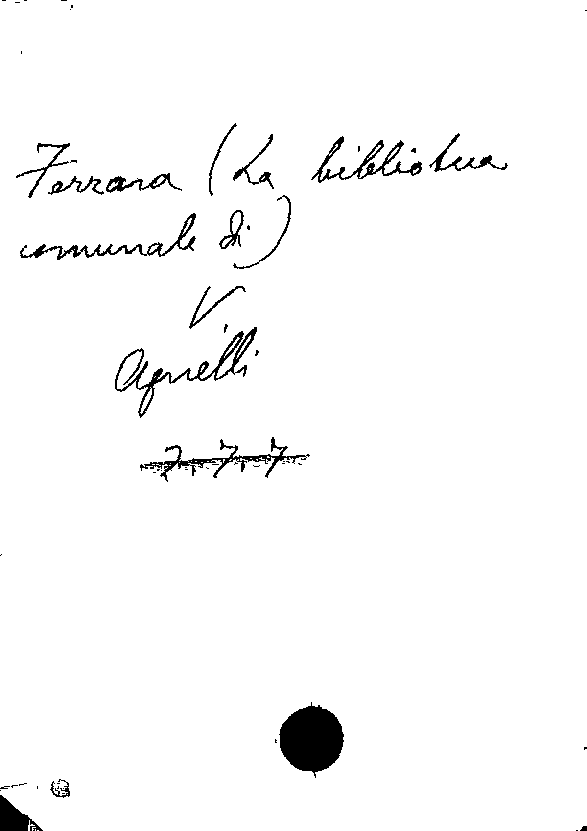 Ferrara (La biblioteca
comunale di)
V.
Agnelli
7.7.7